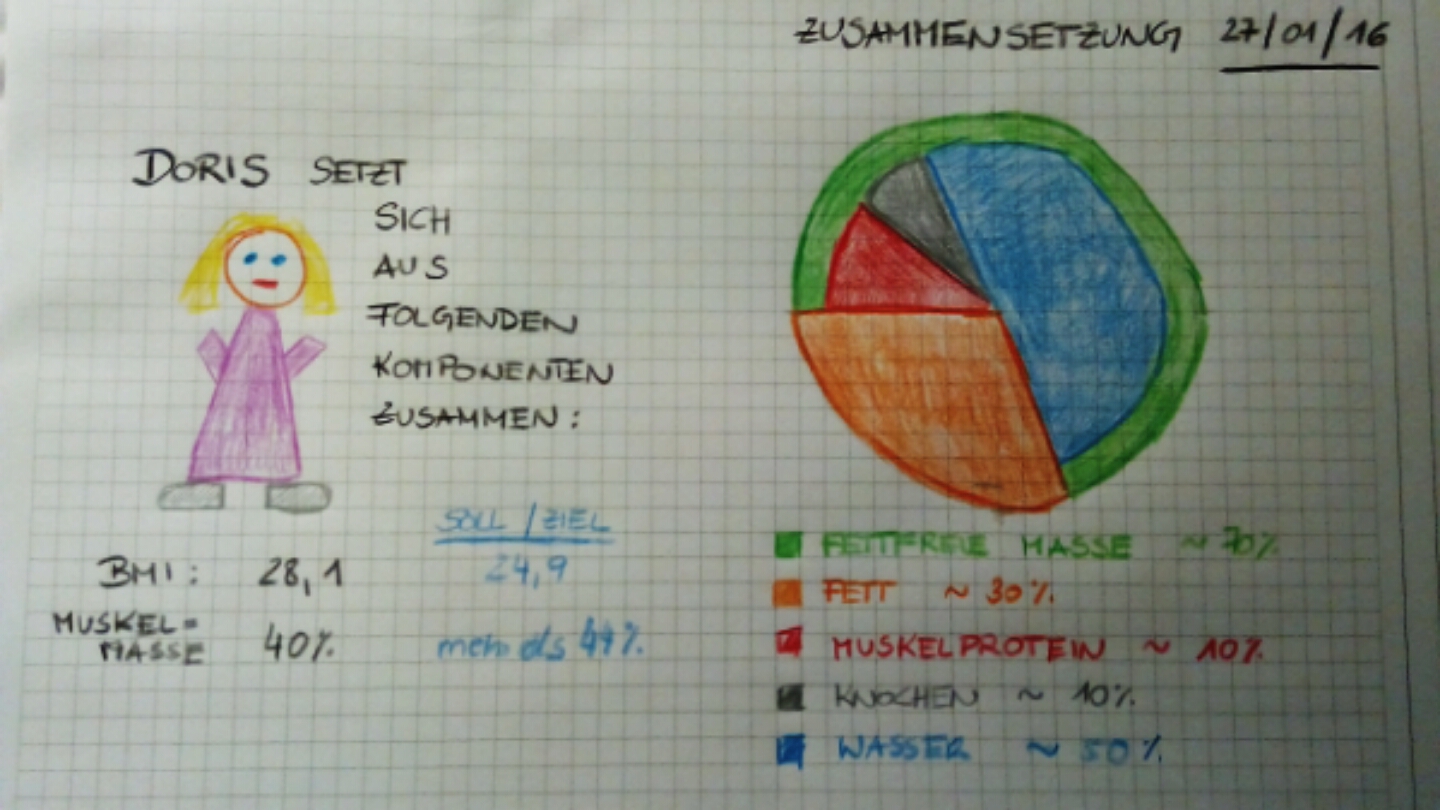 ZUSAMMENSETZUNG 27/01/16
DORIS SETZT
SICH
AUS
FOLGENDEN
KOMPONENTEN
ZUSAMMEN:
SOLL / ZIEL
BMI: 28,1 24,9
MUSKEL=
MASSE 40% mehr als 44%
FETTFREIE MASSE ~ 70%
FETT ~ 30%
MUSKELPROTEIN ~ 10%
KNOCHEN ~ 10%
WASSER ~ 50%